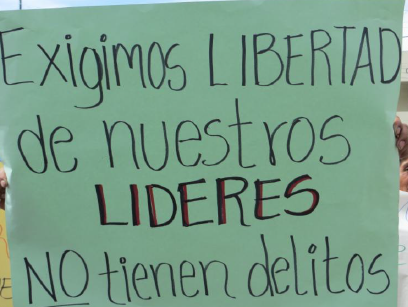 Exigimos LIBERTAD
de nuestros
LIDERES
NO tienen delitos